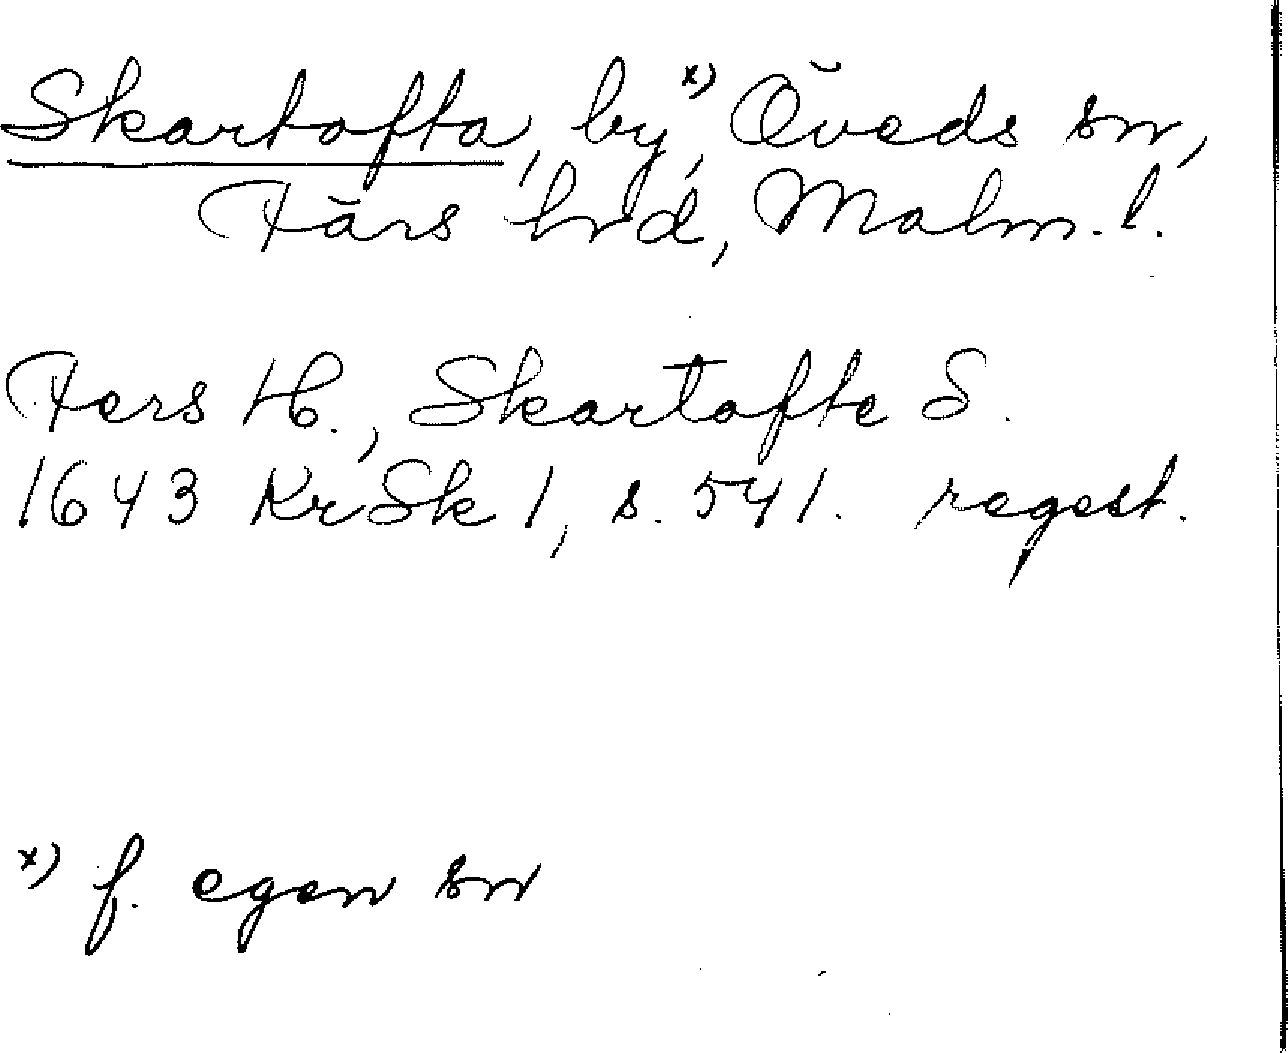 Skartofta, by,x) Öveds sn,
Färs hrd, Malm. l.
Fers H., Skartofte S.
1643 KrSk 1, s. 541. regest.
x) f. egen sn